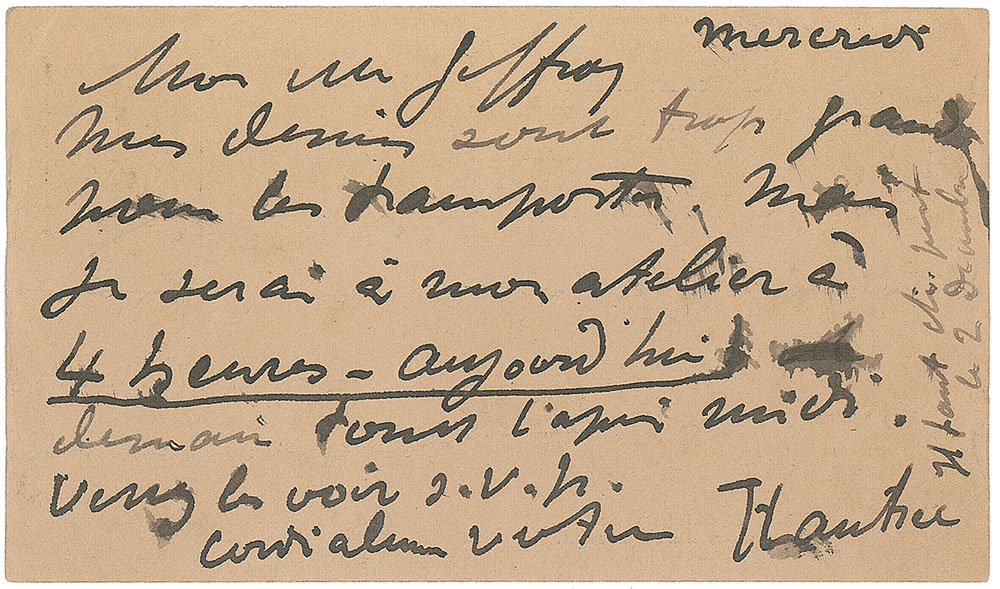 mercredi
Mon cher Geffroy
Mes dessins sont trop grands
pour les transporter. Mais
je serai à mon atelier à
4 heures – aujourd'hui
demain tout l'après midi.
Venez les voir s.v.p.
cordialement votre
TLautrec
Il faut
le 2 Décembre